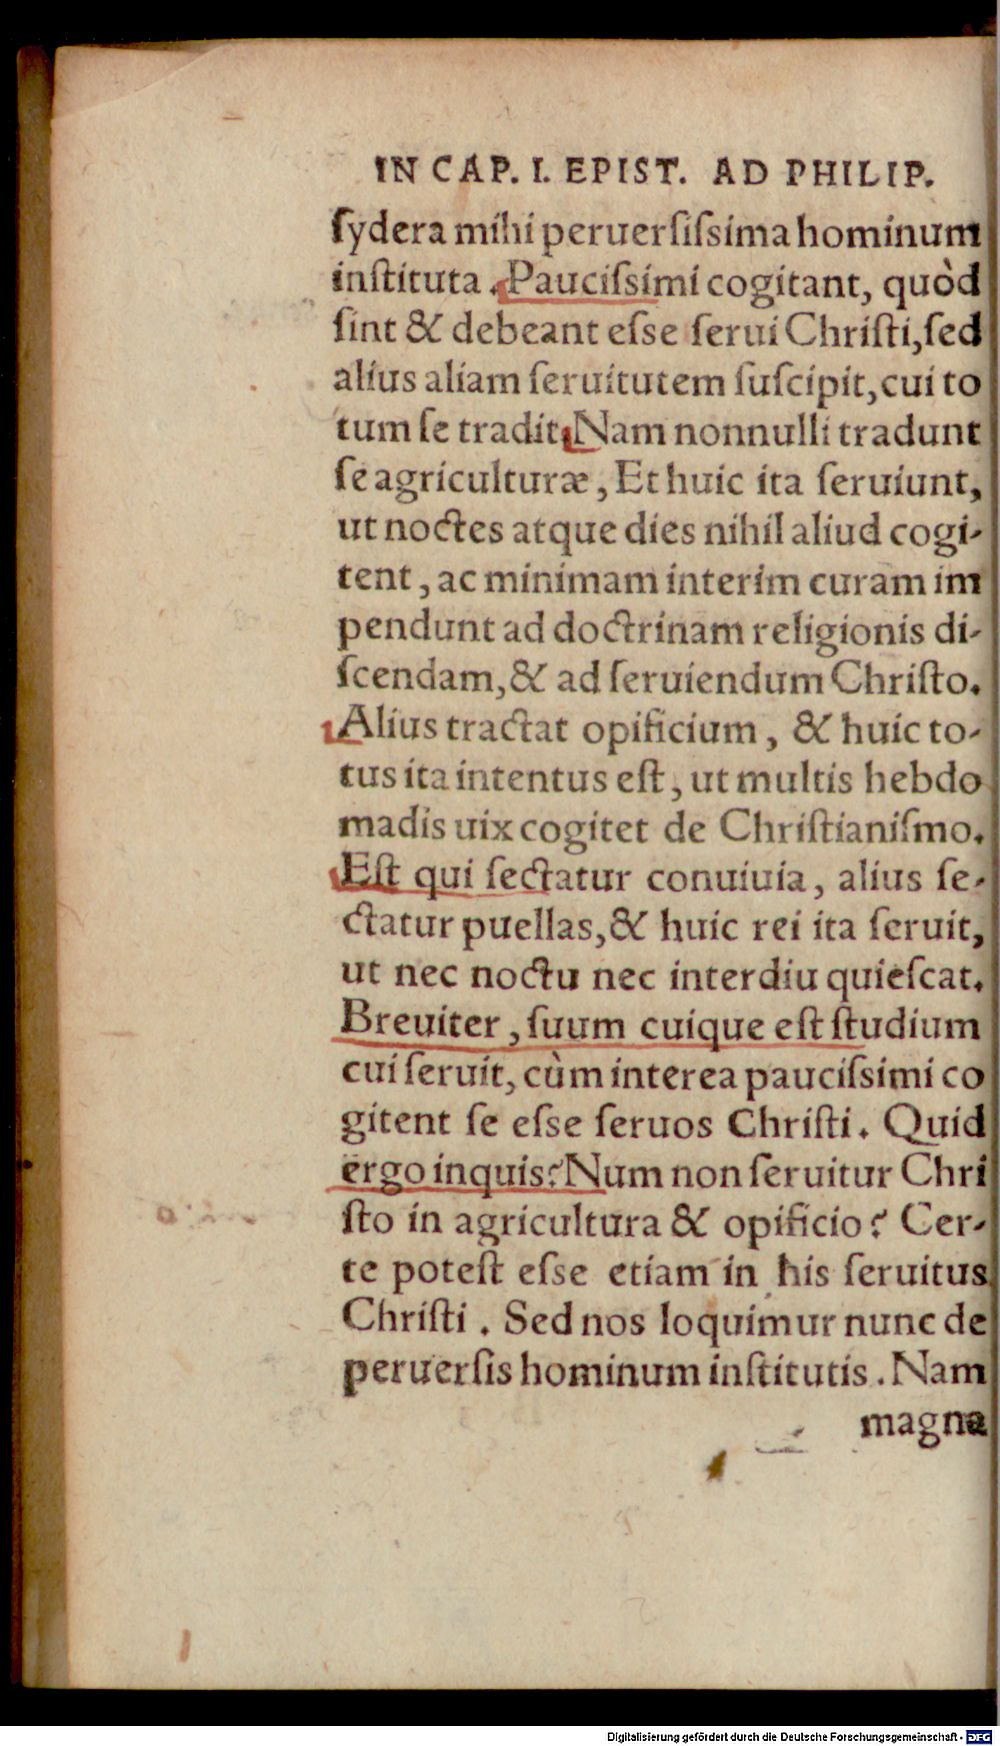 IN CAP. I. EPIST. AD PHILIP.
ſydera mihi peruerſiſsima hominum
inſtituta. Pauciſsimi cogitant, quòd
ſint & debeant eſse ſerui Chriſti, ſed
alius aliam ſeruitutem ſuſcipit, cui to
tum ſe tradit. Nam nonnulli tradunt
ſe agriculturæ, Et huic ita ſeruiunt,
ut noctes atque dies nihil aliud cogi-
tent, ac minimam interim curam im
pendunt ad doctrinam religionis di-
ſcendam, & ad ſeruiendum Chriſto.
Alius tractat opificium, & huic to-
tus ita intentus eſt, ut multis hebdo
madis uix cogitet de Chriſtianiſmo.
Eſt qui ſectatur conuiuia, alius ſe-
ctatur puellas, & huic rei ita ſeruit,
ut nec noctu nec interdiu quieſcat.
Breuiter, ſuum cuique eſt ſtudium
cui ſeruit, cùm interea pauciſsimi co
gitent ſe eſse ſeruos Chriſti. Quid
ergo inquis? Num non ſeruitur Chri
ſto in agricultura & opificio? Cer-
te poteſt eſse etiam in his ſeruitus
Chriſti. Sed nos loquimur nunc de
peruerſis hominum inſtitutis. Nam
magna
Digitalisierung gefördert durch die Deutsche Forschungsgemeinschaft - DFG